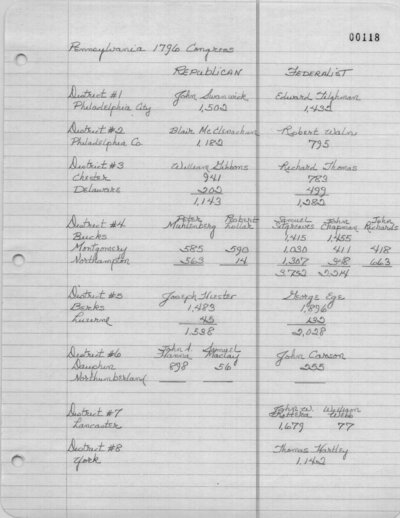 00118
Pennsylvania 1796 Congress
REPUBLICAN FEDERALIST
District #1 John Swanwick Edward Tilghman
Philadelphia City 1,502 1,432
District #2 Blair McClenachan Robert Waln
Philadelphia Co. 1,182 795
District #3 William Gibbons Richard Thomas
Chester 941 783
Delaware 202 499
1,143 1,282
District #4 Peter Muhlenberg Robert Samuel Sitgreaves John Chapman John Richards
Bucks 1,415 1,455
Montgomery 585 590 1,030 411 418
Northampton 563 14 1,307 348 663
3,752 2,214
District #5 Joseph Hiester George Ege
Berks 1,483 1,896
Luzerne 45 132
1,528 2,028
District #6 John A. Hanna Samuel Maclay John Carson
Dauphin 898 56 255
Northumberland
District #7 John W. Kittera William Webb
Lancaster 1,679 77
District #8 Thomas Hartley
York 1,142